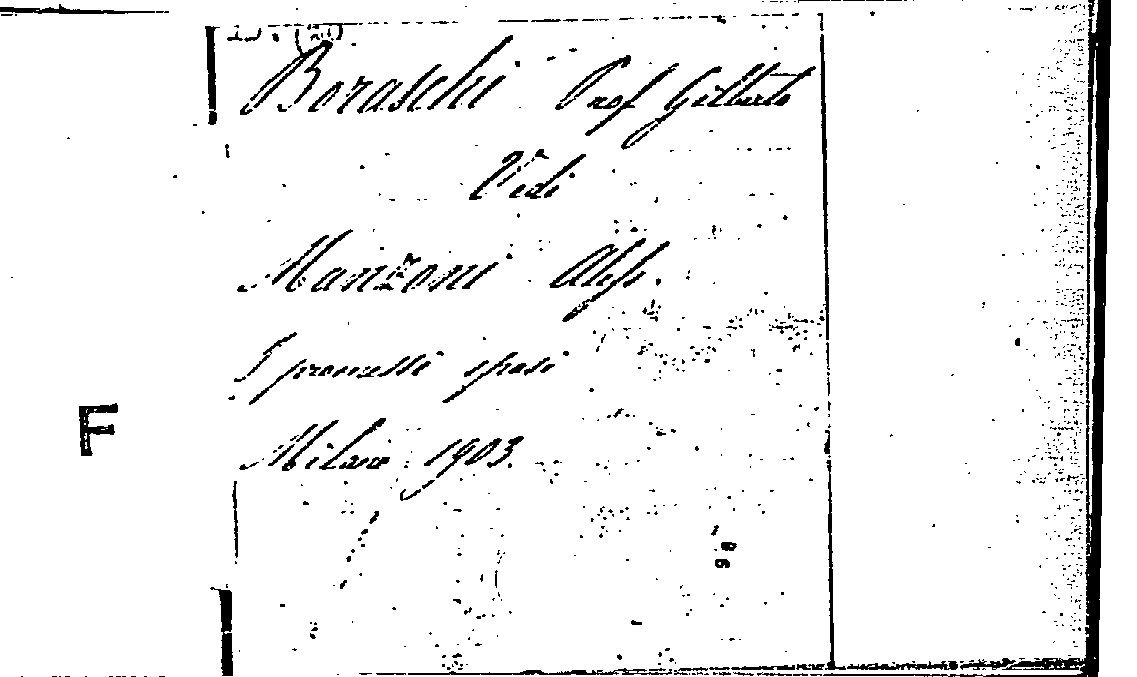 Boraschi Prof Gilberto
Vedi
Manzoni Aless.
I promessi sposi
Milano 1903.
F
98